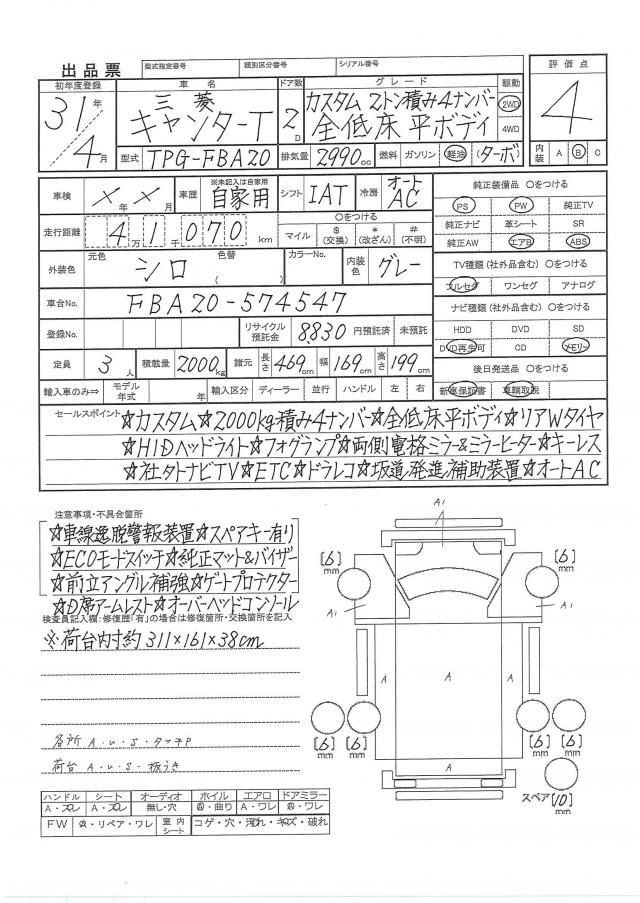 出品票 型式指定番号 類別区分番号 シリアル番号
初年度登録 車名 ドア数 グレード 駆動 評価点
31年 三菱 カスタム 2トン積み4ナンバー 2WD 4
4月 キャンターT 2D 全低床 平ボディ 4WD
型式 TPG-FBA20 排気量 2990cc 燃料 ガソリン 軽油 (ターボ) 内装 A B C
車検 ×年×月 車歴 ※未記入は自家用 自家用 シフト IAT 冷房 オートAC
純正装備品 ○をつける
PS PW 純正TV
走行距離 4万1千070km ○をつける
マイル $(交換) *(改ざん) #(不明)
純正ナビ 革シート SR
純正AW エアB ABS
外装色 元色 シロ 色替 ( ) カラーNo. 内装色 グレー
TV種類(社外品含む) ○をつける
フルセグ ワンセグ アナログ
車台No. FBA20-574547
ナビ種類(社外品含む) ○をつける
HDD DVD SD
登録No. リサイクル預託金 8830 円預託済 未預託
DVD再生可 CD メモリー
定員 3人 積載量 2000kg 諸元 長さ 469cm 幅 169cm 高さ 199cm
後日発送品 ○をつける
輸入車のみ⇒ モデル年式 年 輸入区分 ディーラー 並行 ハンドル 左 右
新車保証書 車輌取説
セールスポイント ☆カスタム☆2000kg積み4ナンバー☆全低床平ボディ☆リアWタイヤ
☆HIDヘッドライト☆フォグランプ☆両側電格ミラー&ミラーヒーター☆キーレス
☆社外ナビTV☆ETC☆ドラレコ☆坂道発進補助装置☆オートAC
注意事項・不具合箇所
☆車線逸脱警報装置☆スペアキー有り
☆ECOモードスイッチ☆純正マット&バイザー
☆前立アングル補強☆ゲートプロテクター
☆D席アームレスト☆オーバーヘッドコンソール
検査員記入欄:修復歴「有」の場合は修復箇所・交換箇所を記入
※荷台内寸約311×161×38cm
各所 A・U・S・タッチP
荷台 A・U・S・板うき
A1
[6]mm [6]mm
A1 A1
A A A
[6]mm [6]mm [6]mm [6]mm
A
スペア[10]mm
ハンドル シート オーディオ ホイル エアロ ドアミラー
A・スレ A・スレ 無し・穴 A・曲り A・ワレ A・ワレ
FW A・リペア・ワレ 室内シート コゲ・穴・汚れ・キズ・破れ